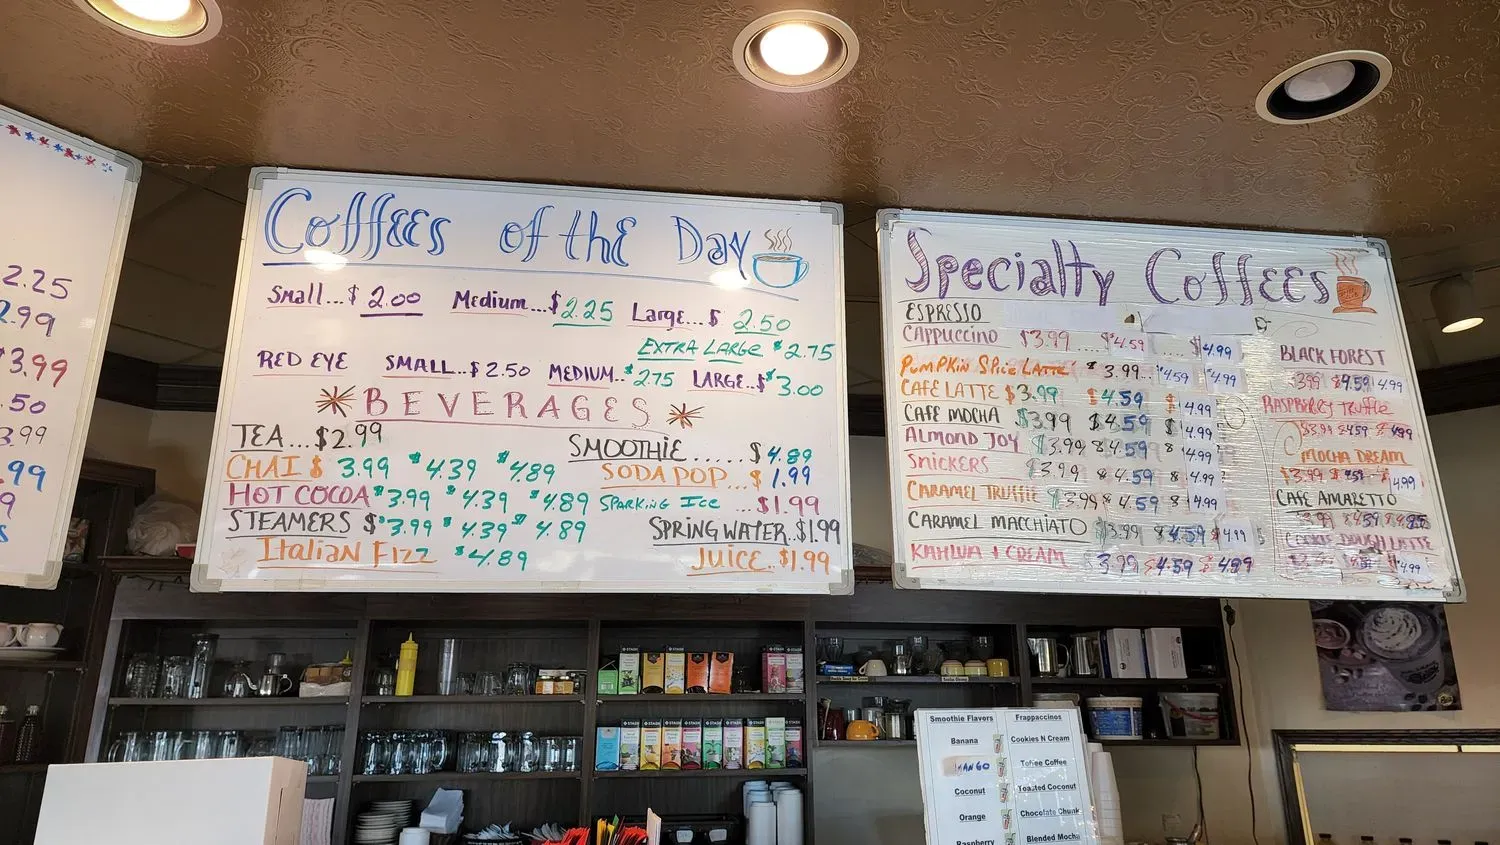 2.25
2.99
3.99
.50
3.99
.99
9
s
Coffees of the Day
Small...$ 2.00 Medium...$2.25 Large...$ 2.50
EXTRA LARGE $2.75
RED EYE SMALL..$2.50 MEDIUM..$2.75 LARGE..$3.00
BEVERAGES
TEA...$2.99
CHAI $ 3.99 $4.39 $4.89
HOT COCOA $3.99 $4.39 $4.89
STEAMERS $3.99 $4.39 $4.89
Italian Fizz $4.89
SMOOTHIE.....$4.89
SODA POP...$1.99
SPARKING ICE ...$1.99
SPRING WATER..$1.99
JUICE..$1.99
Specialty Coffees
ESPRESSO
CAPPUCCINO $3.99....$4.59....$4.99
PUMPKIN SPICE LATTE $3.99..$4.59 $4.99
CAFE LATTE $3.99 $4.59 $4.99
CAFE MOCHA $3.99 $4.59 $4.99
ALMOND JOY $3.99 $4.59 $4.99
SNICKERS $3.99 $4.59 $4.99
CARAMEL TRUFFLE $3.99 $4.59 $4.99
CARAMEL MACCHIATO $3.99 $4.59 $4.99
KAHLUA + CREAM $3.99 $4.59 $4.99
BLACK FOREST
3.99 $4.59 4.99
RASPBERRY TRUFFLE
$3.99 $4.59 $4.99
MOCHA DREAM
$3.99 4.99
CAFE AMARETTO
COOKIE DOUGH LATTE
4.99
STASH STASH STASH STASH STASH STASH STASH
Smoothie Flavors
Banana
MANGO
Coconut
Orange
Raspberry
Frappaccinos
Cookies N Cream
Toffee Coffee
Toasted Coconut
Chocolate Chunk
Blended Mocha